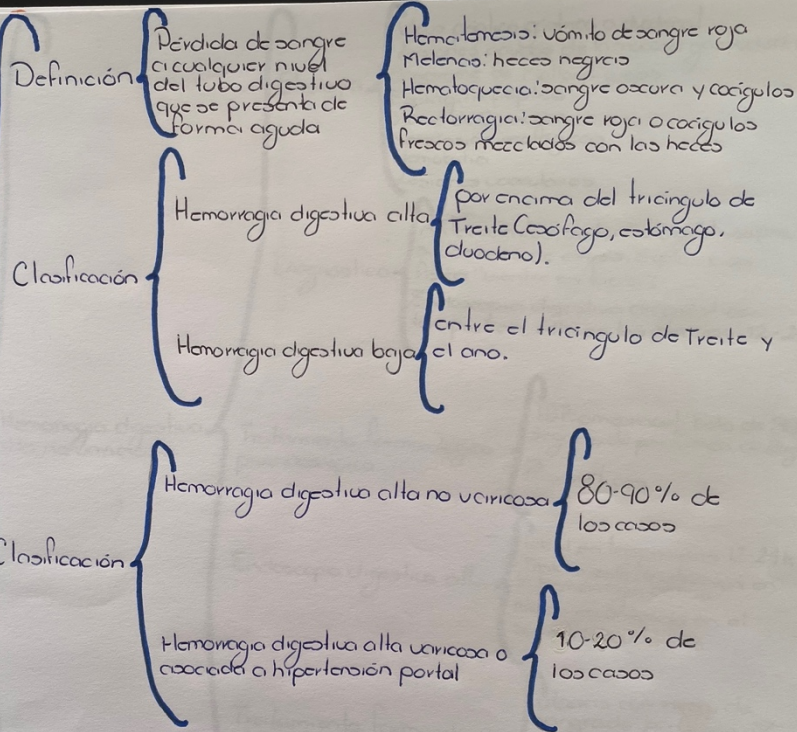 Definición
Pérdida de sangre
a cualquier nivel
del tubo digestivo
que se presenta de
forma aguda
Hematemesis: vómito de sangre roja
Melenas: heces negras
Hematoquecia: sangre oscura y coágulos
Rectorragia: sangre roja o coágulos
frescos mezclados con las heces
Clasificación
Hemorragia digestiva alta
por encima del triángulo de
Treite (esófago, estómago,
duodeno).
Hemorragia digestiva baja
entre el triángulo de Treite y
el ano.
Clasificación
Hemorragia digestiva alta no varicosa
80-90% de
los casos
Hemorragia digestiva alta varicosa o
asociada a hipertensión portal
10-20% de
los casos